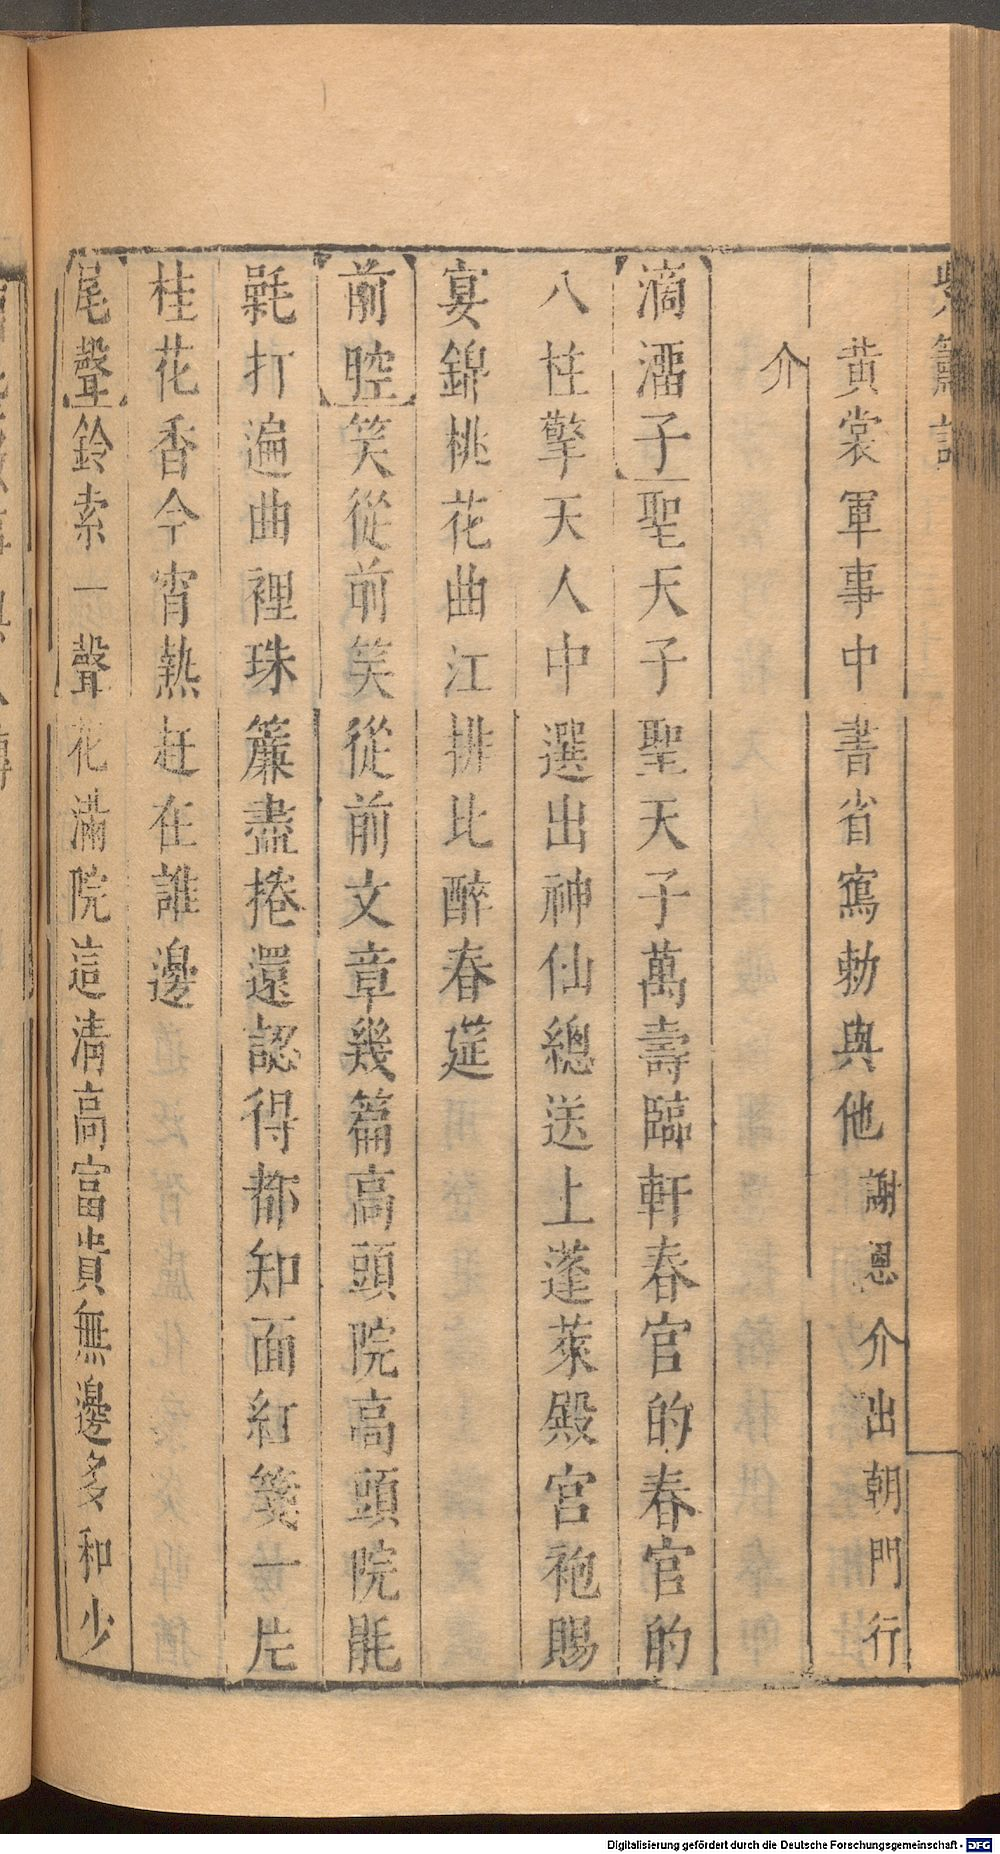 紫簫記
黃裳軍事中書省寫勅與他謝恩介出朝門行
介
滴溜子聖天子聖天子萬壽臨軒春官的春官的
八柱擎天人中選出神仙總送上蓬萊殿宮袍賜
宴錦桃花曲江排比醉春莚
前腔笑從前笑從前文章幾篇高頭院高頭院毾
㲪打遍曲裡珠簾盡捲還認得都知面紅箋一片
桂花香今宵熱赶在誰邊
尾聲鈴索一聲花滿院這清高富貴無邊多和少
Digitalisierung gefördert durch die Deutsche Forschungsgemeinschaft - DFG